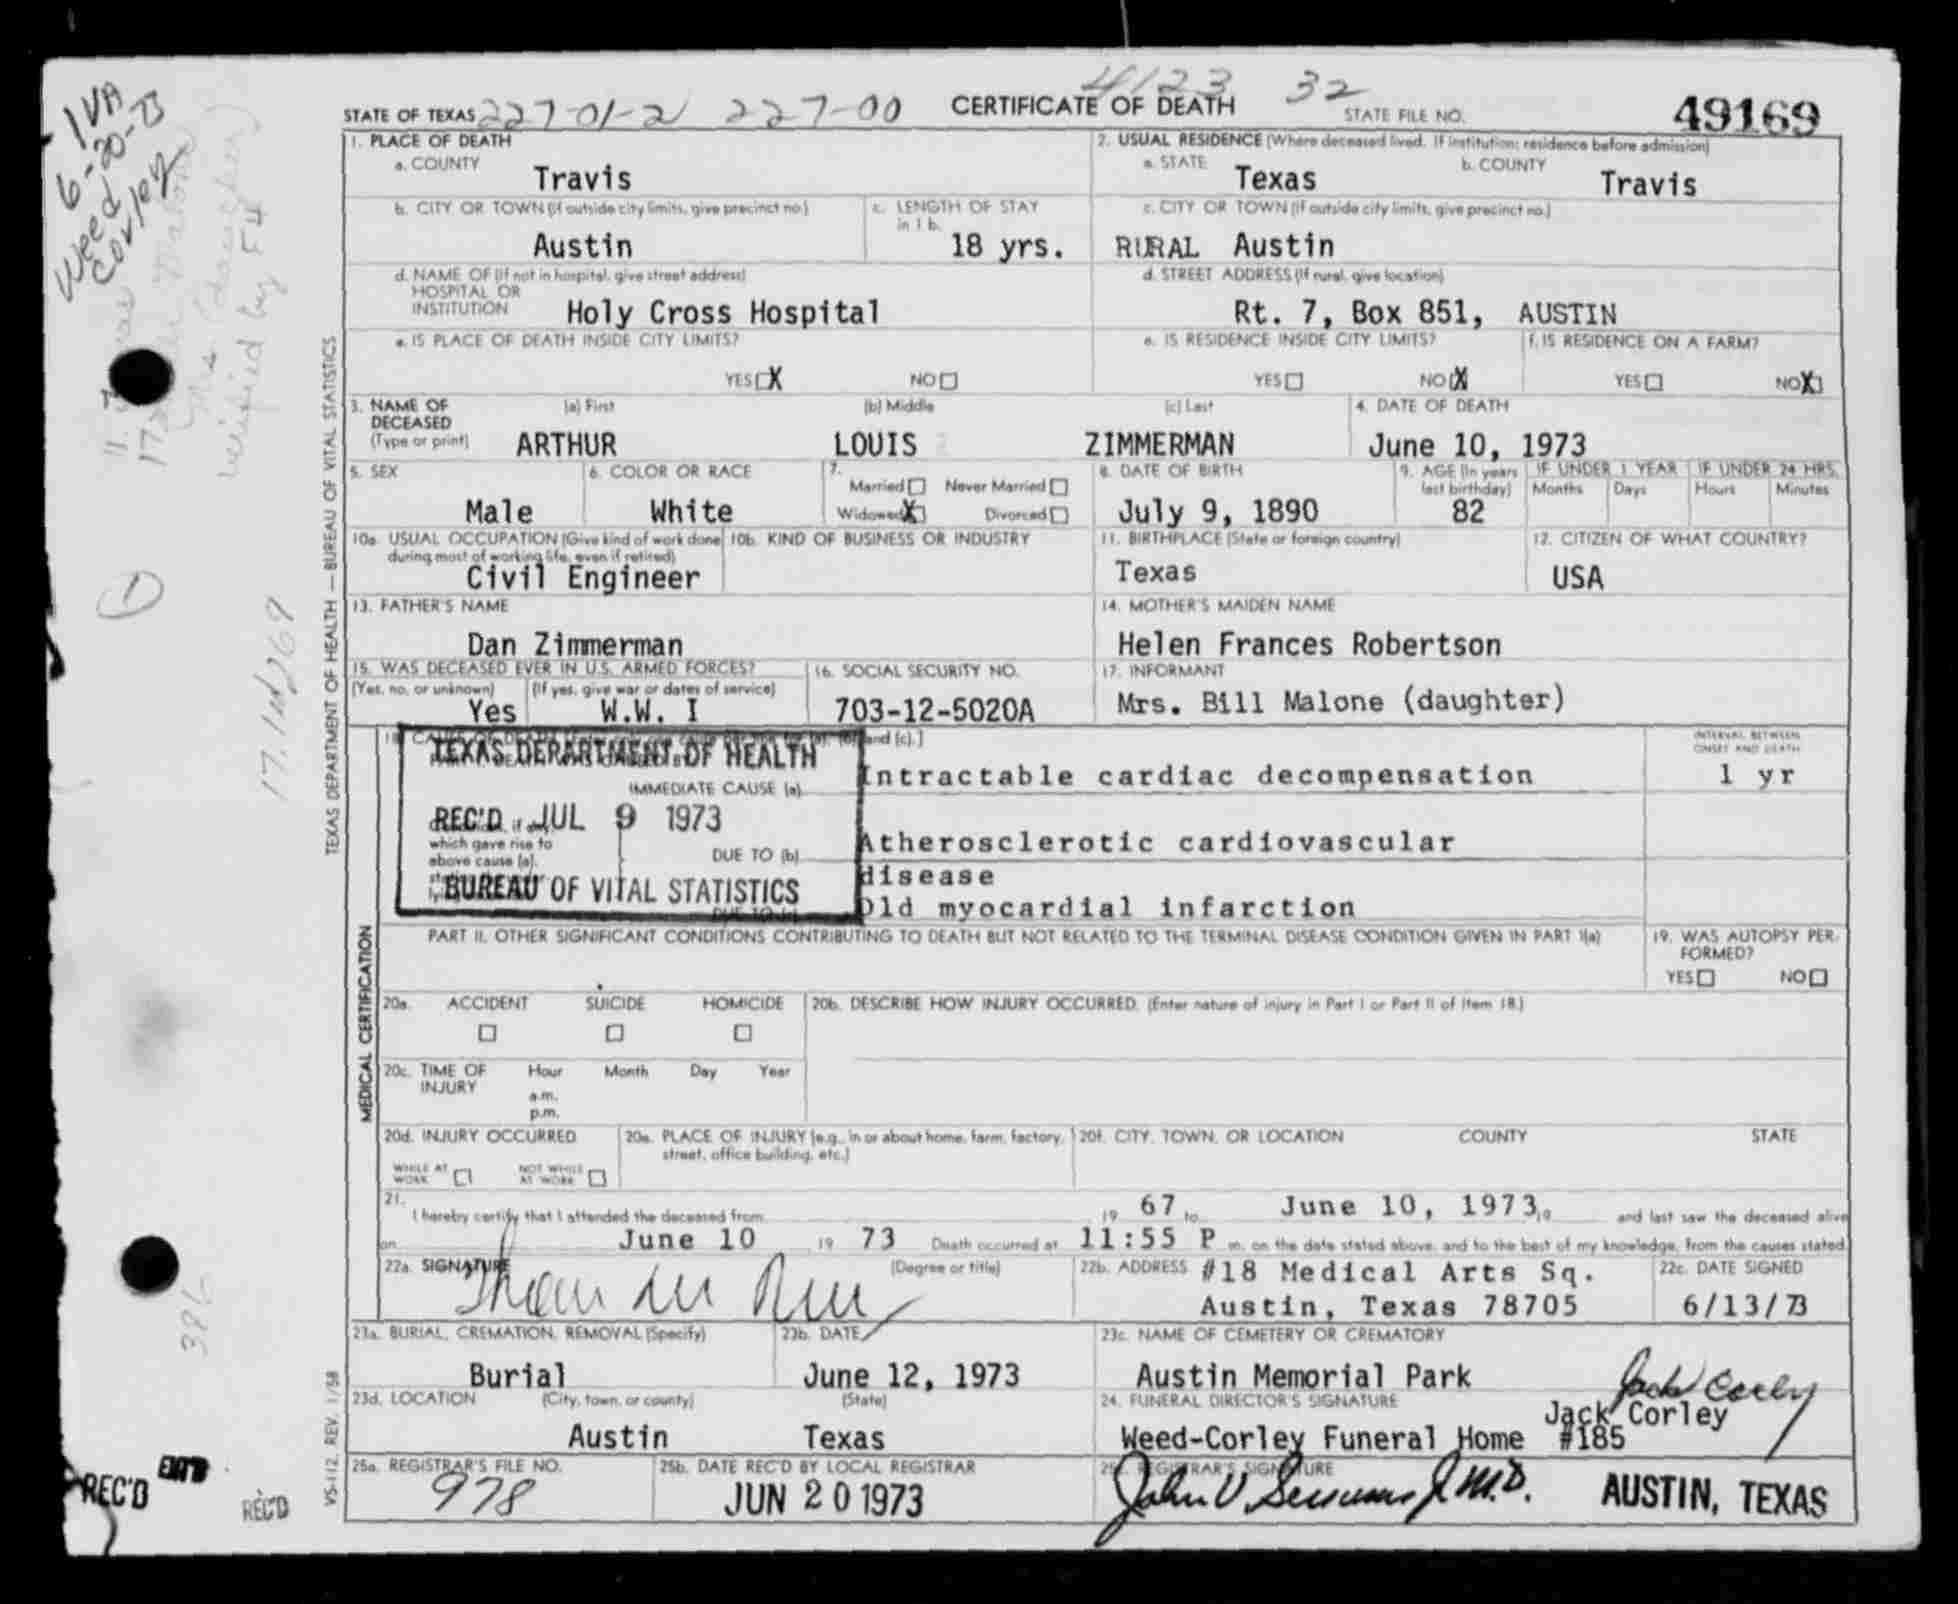 4123 32
STATE OF TEXAS 227-01-2 227-00 CERTIFICATE OF DEATH STATE FILE NO. 49169
1. PLACE OF DEATH
a. COUNTY
Travis
2. USUAL RESIDENCE (Where deceased lived. If institution: residence before admission)
a. STATE Texas b. COUNTY Travis
b. CITY OR TOWN (If outside city limits, give precinct no.)
Austin
c. LENGTH OF STAY in 1 b.
18 yrs.
c. CITY OR TOWN (If outside city limits, give precinct no.)
RURAL Austin
d. NAME OF (If not in hospital, give street address)
HOSPITAL OR
INSTITUTION Holy Cross Hospital
d. STREET ADDRESS (If rural, give location)
Rt. 7, Box 851, AUSTIN
e. IS PLACE OF DEATH INSIDE CITY LIMITS?
YES X NO
e. IS RESIDENCE INSIDE CITY LIMITS?
YES NO X
f. IS RESIDENCE ON A FARM?
YES NO X
3. NAME OF DECEASED (Type or print)
(a) First (b) Middle (c) Last
ARTHUR LOUIS ZIMMERMAN
4. DATE OF DEATH
June 10, 1973
5. SEX
Male
6. COLOR OR RACE
White
7.
Married Never Married
Widowed X Divorced
8. DATE OF BIRTH
July 9, 1890
9. AGE (In years last birthday)
82
IF UNDER 1 YEAR
Months Days
IF UNDER 24 HRS.
Hours Minutes
10a. USUAL OCCUPATION (Give kind of work done during most of working life, even if retired)
Civil Engineer
10b. KIND OF BUSINESS OR INDUSTRY
11. BIRTHPLACE (State or foreign country)
Texas
12. CITIZEN OF WHAT COUNTRY?
USA
13. FATHER'S NAME
Dan Zimmerman
14. MOTHER'S MAIDEN NAME
Helen Frances Robertson
15. WAS DECEASED EVER IN U.S. ARMED FORCES?
(Yes, no, or unknown) (If yes, give war or dates of service)
Yes W.W. I
16. SOCIAL SECURITY NO.
703-12-5020A
17. INFORMANT
Mrs. Bill Malone (daughter)
TEXAS DEPARTMENT OF HEALTH
REC'D JUL 9 1973
BUREAU OF VITAL STATISTICS
INTERVAL BETWEEN
ONSET AND DEATH
IMMEDIATE CAUSE (a) Intractable cardiac decompensation 1 yr
which gave rise to
above cause (a),
DUE TO (b) Atherosclerotic cardiovascular
disease
DUE TO (c) Old myocardial infarction
PART II. OTHER SIGNIFICANT CONDITIONS CONTRIBUTING TO DEATH BUT NOT RELATED TO THE TERMINAL DISEASE CONDITION GIVEN IN PART I(a)
19. WAS AUTOPSY PER-
FORMED?
YES NO
20a. ACCIDENT SUICIDE HOMICIDE
20b. DESCRIBE HOW INJURY OCCURRED. (Enter nature of injury in Part I or Part II of Item 18.)
20c. TIME OF INJURY Hour Month Day Year
a.m.
p.m.
20d. INJURY OCCURRED
WHILE AT WORK NOT WHILE AT WORK
20e. PLACE OF INJURY (e.g., in or about home, farm, factory, street, office building, etc.)
20f. CITY, TOWN, OR LOCATION COUNTY STATE
21.
I hereby certify that I attended the deceased from 19 67 to June 10, 1973, 19 and last saw the deceased alive
on June 10 19 73 Death occurred at 11:55 P m. on the date stated above, and to the best of my knowledge, from the causes stated.
22a. SIGNATURE (Degree or title)
22b. ADDRESS #18 Medical Arts Sq.
Austin, Texas 78705
22c. DATE SIGNED
6/13/73
23a. BURIAL, CREMATION, REMOVAL (Specify)
Burial
23b. DATE
June 12, 1973
23c. NAME OF CEMETERY OR CREMATORY
Austin Memorial Park
23d. LOCATION (City, town, or county) (State)
Austin Texas
24. FUNERAL DIRECTOR'S SIGNATURE
Jack Corley
Jack Corley
Weed-Corley Funeral Home #185
25a. REGISTRAR'S FILE NO.
978
25b. DATE REC'D BY LOCAL REGISTRAR
JUN 20 1973
25c. REGISTRAR'S SIGNATURE
AUSTIN, TEXAS
TEXAS DEPARTMENT OF HEALTH — BUREAU OF VITAL STATISTICS
MEDICAL CERTIFICATION
VS-112, REV. 1/58
1 VA
6-20-73
Weed
Corley
1
386
REC'D
REC'D